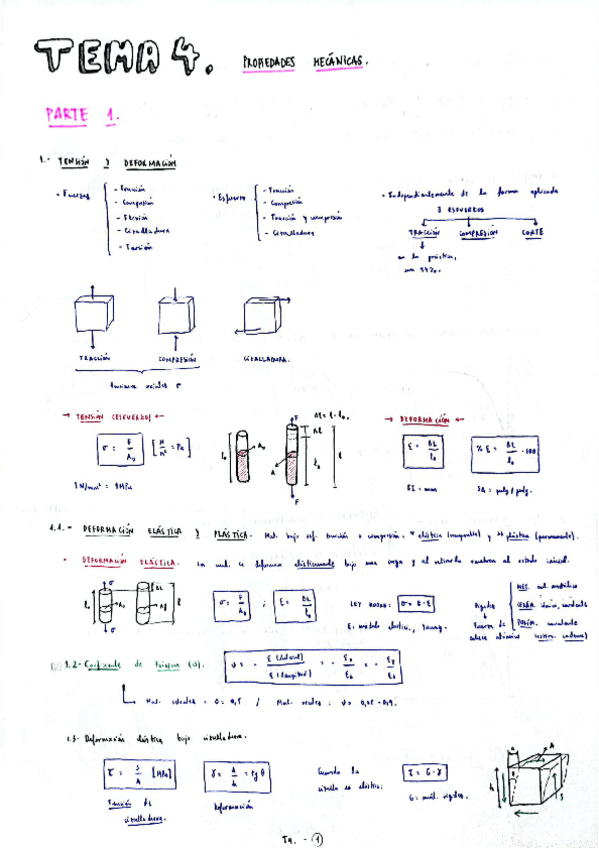 TEMA 4. PROPIEDADES MECÁNICAS.
PARTE 1.
1.- TENSIÓN Y DEFORMACIÓN
- Fuerzas
- Tracción
- Compresión
- Flexión
- Cizalladura
- Torsión
- Esfuerzo
- Tracción
- Compresión
- Tracción y compresión
- Cizalladura
- Independientemente de la forma aplicada
3 ESFUERZOS
TRACCIÓN COMPRESIÓN CORTE
en la práctica,
TRACCIÓN COMPRESIÓN CIZALLADURA.
tensiones axiales σ
→ TENSIÓN (ESFUERZO) ←
σ = F / A₀ [N/m² = Pa]
1N/mm² = 1MPa
l₀ A₀
F Δl = l - l₀
Δl l₀ l A F
→ DEFORMACIÓN ←
ε = Δl / l₀
% ε = Δl / l₀ · 100
SI = m/m
SA = pulg / pulg.
1.1.- DEFORMACIÓN ELÁSTICA Y PLÁSTICA.- Mat. bajo esf. tracción o compresión: * elástica (recuperable) y ** plástica (permanente).
- DEFORMACIÓN ELÁSTICA. Un mat. se deforma elásticamente bajo una carga y al retirarla vuelve al estado inicial.
σ l₀ A₀ Δl l σ
σ = F / A₀ ; ε = Δl / l₀
LEY HOOKE: σ = E · ε
E: módulo elástico, Young.
Rigidez
Fuerzas de enlace atómico
MET. enl. metálico
CERÁM. iónico, covalente
POLÍM. covalente
1.2- Coeficiente de Poisson (υ).
υ = - ε (lateral) / ε (longitud)
Mat. ideales = υ = 0,5 / Mat. reales: υ = 0,25 - 0,4.
1.3- Deformación elástica bajo cizalladura.
τ = S / A [MPa]
Tensión de cizalladura.
γ = a / h = tg θ
Deformación
Cuando la cizalla es elástica:
τ = G · γ
G = mód. rigidez.
a A h S
Tq. - 1